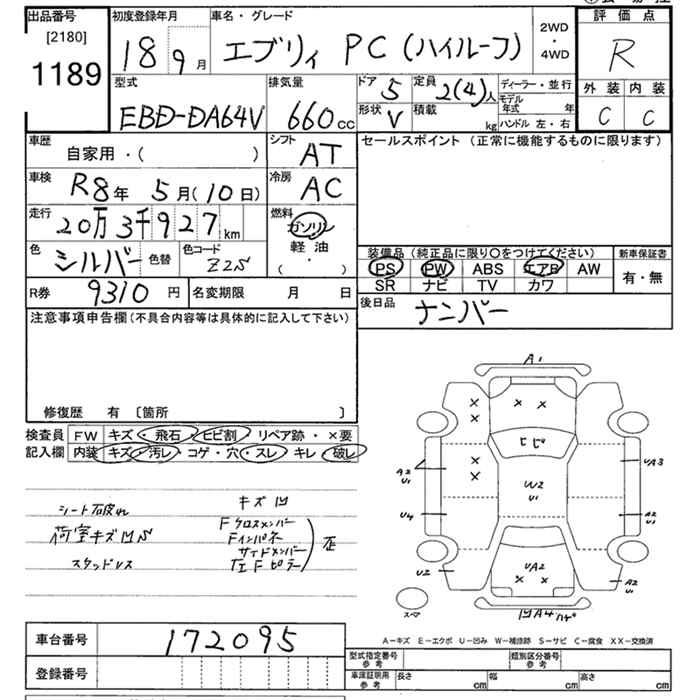 出品番号
[2180]
1189
初度登録年月
18 9月
車名・グレード
エブリィ PC (ハイルーフ)
2WD
・
4WD
評価点
R
外装 内装
C C
型式
EBD-DA64V
排気量
660cc
ドア 5
定員 2(4)人
形状 V
積載 kg
ディーラー・並行
モデル年式 年
ハンドル 左・右
車歴
自家用・( )
シフト AT
車検 R8年 5月(10日)
冷房 AC
走行 20万3千927km
燃料
ガソリン
軽油
・
( )
色 シルバー 色替
色コード Z2S
セールスポイント (正常に機能するものに限ります)
装備品 (純正品に限り○をつけてください)
PS PW ABS エアB AW
SR ナビ TV カワ
新車保証書
有・無
R券 9310円
名変期限 月 日
後日品 ナンバー
注意事項申告欄(不具合内容等は具体的に記入して下さい)
修復歴 有 〔箇所 〕
検査員 FW キズ・飛石・ヒビ割・リペア跡・×要
記入欄 内装 キズ・汚レ・コゲ・穴・スレ・キレ・破レ
シート破れ
荷室キズ凹S
スタッドレス
キズ凹
Fクロスメンバー
Fインパネ
サイドメンバー
左Fピラー
歪
A1
× × × ×
ヒビ
× ×
A2
U1
W2
U1
UA3
U4
A2
U1
U2
UA2
× ×
A2
U1
スペア
凹A4 ハゲ
A-キズ E-エクボ U-凹み W-補修跡 S-サビ C-腐食 XX-交換済
車台番号 172095
登録番号
型式指定番号
参考
類別区分番号
参考
車庫証明用
参考
長さ cm 幅 cm 高さ cm